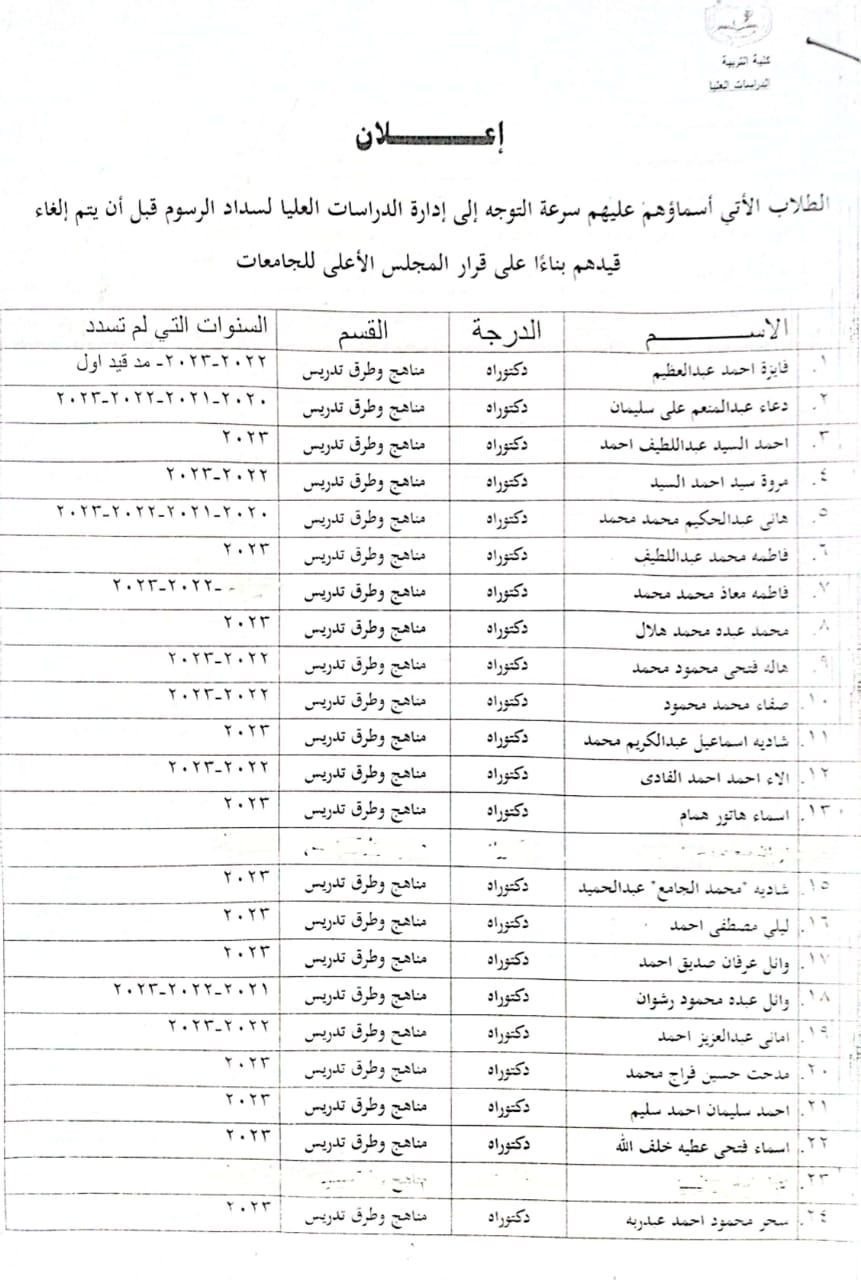 كلية التربية
الدراسات العليا
إعـــــــلان
الطلاب الأتي أسماؤهم عليهم سرعة التوجه إلى إدارة الدراسات العليا لسداد الرسوم قبل أن يتم إلغاء
قيدهم بناءًا على قرار المجلس الأعلى للجامعات
الاســــــــم الدرجة القسم السنوات التي لم تسدد
١. فايزة احمد عبدالعظيم دكتوراه مناهج وطرق تدريس ٢٠٢٢-٢٠٢٣- مد قيد اول
٢. دعاء عبدالمنعم على سليمان دكتوراه مناهج وطرق تدريس ٢٠٢٠-٢٠٢١-٢٠٢٢-٢٠٢٣
٣. احمد السيد عبداللطيف احمد دكتوراه مناهج وطرق تدريس ٢٠٢٣
٤. مروة سيد احمد السيد دكتوراه مناهج وطرق تدريس ٢٠٢٢-٢٠٢٣
٥. هانى عبدالحكيم محمد محمد دكتوراه مناهج وطرق تدريس ٢٠٢٠-٢٠٢١-٢٠٢٢-٢٠٢٣
٦. فاطمه محمد عبداللطيف دكتوراه مناهج وطرق تدريس ٢٠٢٣
٧. فاطمه معاذ محمد محمد دكتوراه مناهج وطرق تدريس -٢٠٢٢-٢٠٢٣
٨. محمد عبده محمد هلال دكتوراه مناهج وطرق تدريس ٢٠٢٣
٩. هاله فتحى محمود محمد دكتوراه مناهج وطرق تدريس ٢٠٢٢-٢٠٢٣
١٠. صفاء محمد محمود دكتوراه مناهج وطرق تدريس ٢٠٢٢-٢٠٢٣
١١. شاديه اسماعيل عبدالكريم محمد دكتوراه مناهج وطرق تدريس ٢٠٢٣
١٢. الاء احمد احمد الفادى دكتوراه مناهج وطرق تدريس ٢٠٢٢-٢٠٢٣
١٣. اسماء هاتور همام دكتوراه مناهج وطرق تدريس ٢٠٢٣
١٥. شاديه "محمد الجامع" عبدالحميد دكتوراه مناهج وطرق تدريس ٢٠٢٣
١٦. ليلي مصطفى احمد دكتوراه مناهج وطرق تدريس ٢٠٢٣
١٧. وائل عرفان صديق احمد دكتوراه مناهج وطرق تدريس ٢٠٢٣
١٨. وائل عبده محمود رشوان دكتوراه مناهج وطرق تدريس ٢٠٢١-٢٠٢٢-٢٠٢٣
١٩. امانى عبدالعزيز احمد دكتوراه مناهج وطرق تدريس ٢٠٢٢-٢٠٢٣
٢٠. مدحت حسين فراج محمد دكتوراه مناهج وطرق تدريس ٢٠٢٣
٢١. احمد سليمان احمد سليم دكتوراه مناهج وطرق تدريس ٢٠٢٣
٢٢. اسماء فتحى عطيه خلف الله دكتوراه مناهج وطرق تدريس ٢٠٢٣
٢٣.
٢٤. سحر محمود احمد عبدربه دكتوراه مناهج وطرق تدريس ٢٠٢٣